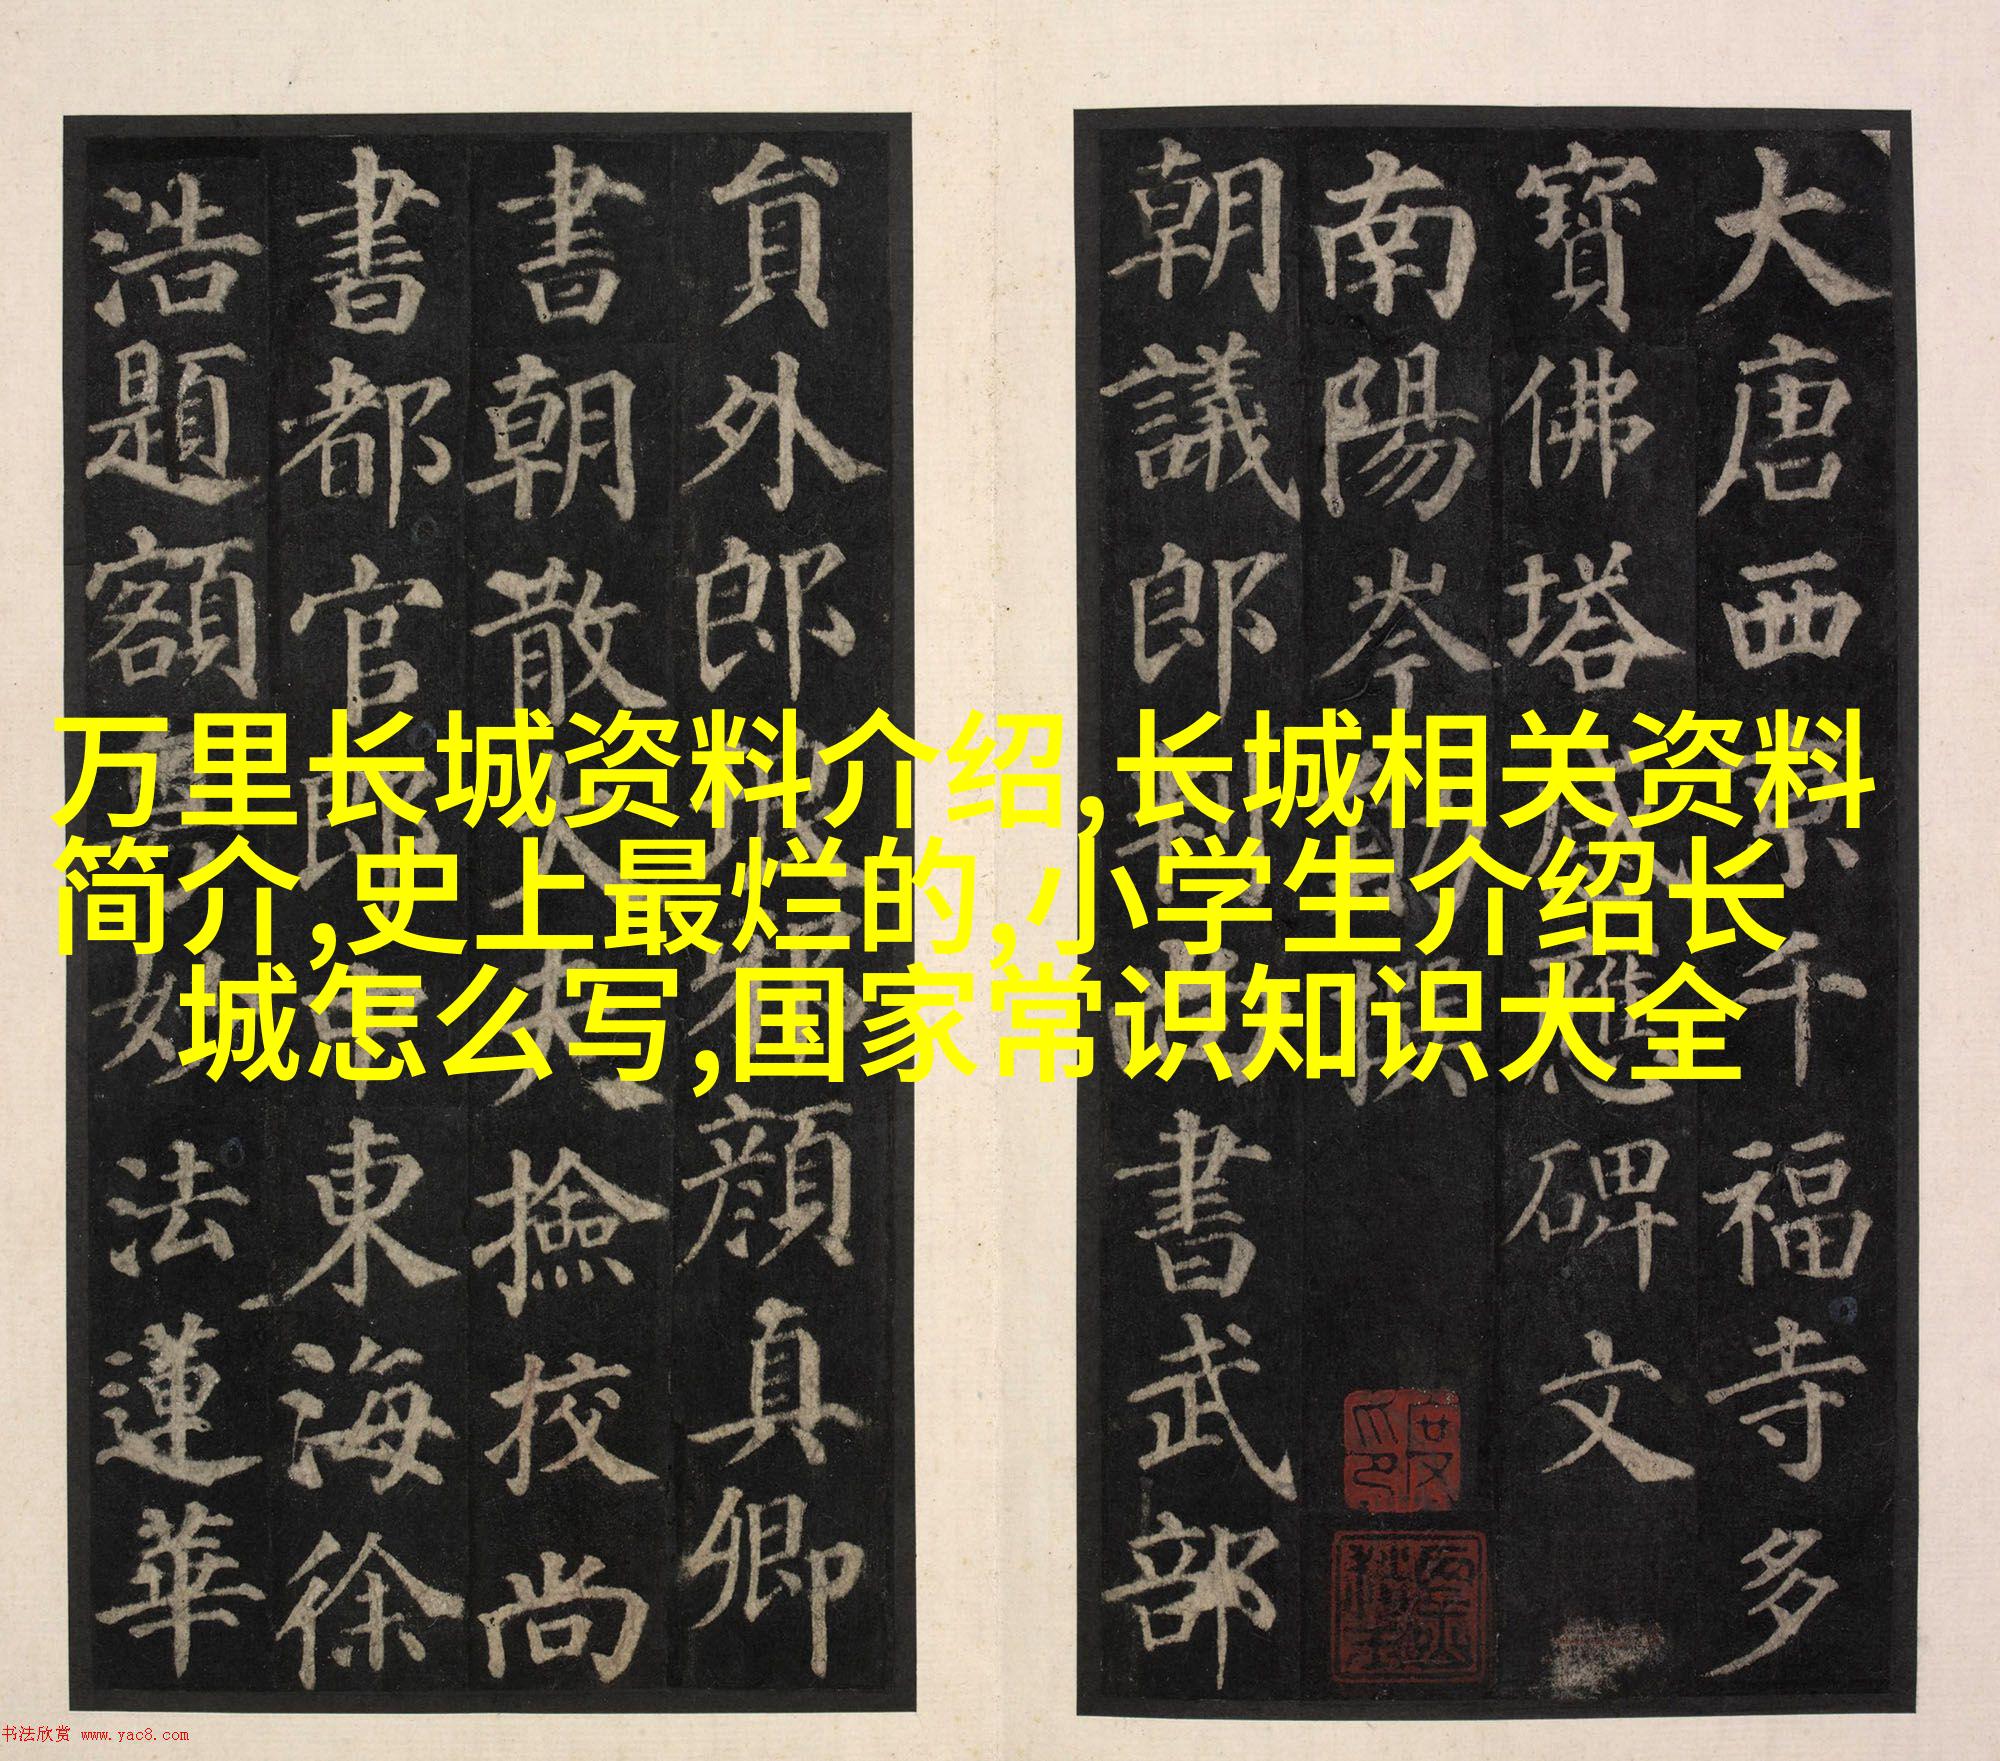 万里长城资料介绍,长城相关资料
简介,史上最烂的,小学生介绍长
城怎么写,国家常识知识大全
大唐西京千福寺多
寶佛塔感應碑文
南陽岑勛撰
朝議郎判尚書武部
貟外郎琅邪顏真卿
書朝散大夫撿挍尚
書都官郎中東海徐
浩題額
法蓮華
书法欣赏 www.yac8.com